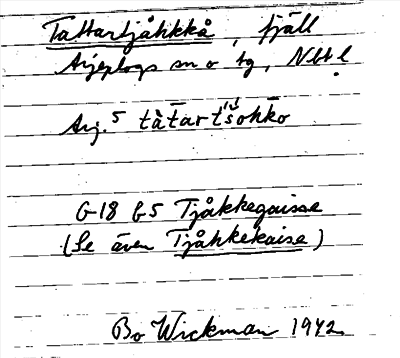 Tattartjåhkkå, fjäll
Arjeplogs sn o tg, Nbt l.
Arj. 5 tàt̄art´šohk̄o
G18 b5 Tjåkkegaisse
(Se även Tjåhkekaise)
Bo Wickman 1942